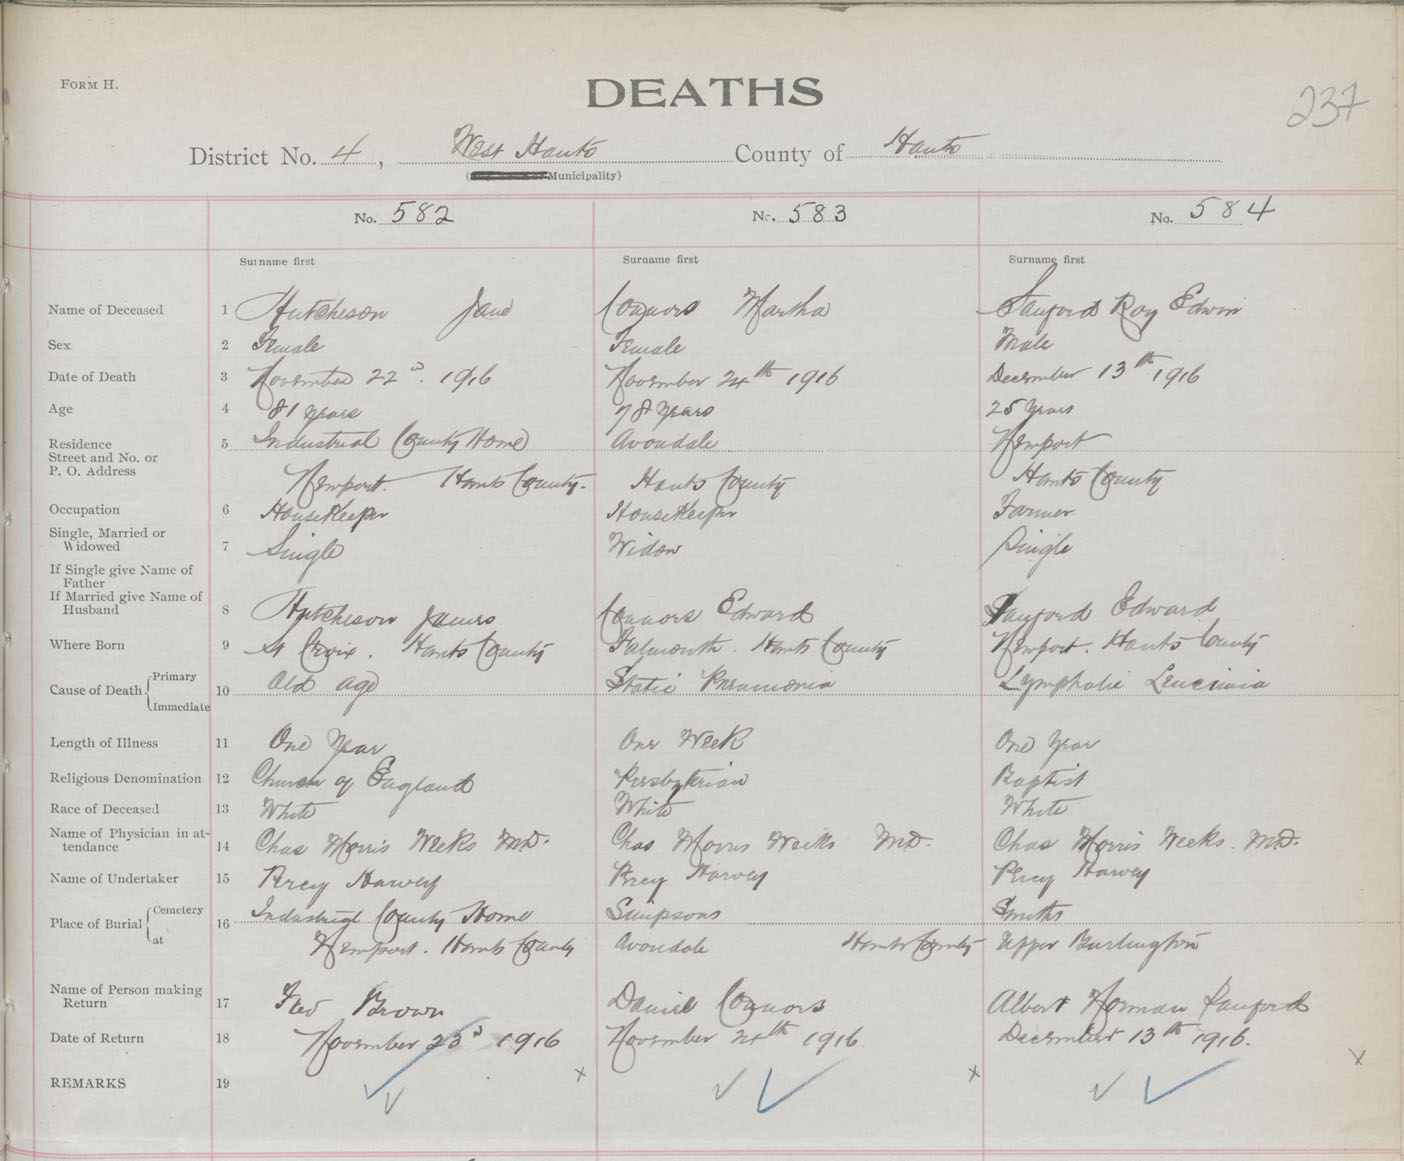 FORM H.
DEATHS
237
District No. 4, West Hants County of Hants
(Municipality)
No. 582 No. 583 No. 584
Surname first Surname first Surname first
Name of Deceased 1 Hutcheson Jane Connors Martha Sanford Roy Edwin
Sex 2 Female Female Male
Date of Death 3 November 22d. 1916 November 24th 1916 December 13th 1916
Age 4 81 years 78 years 25 years
Residence 5 Industrial County Home Avondale Newport
Street and No. or
P. O. Address Newport. Hants County. Hants County Hants County
Occupation 6 HouseKeeper HouseKeeper Farmer
Single, Married or
Widowed 7 Single Widow Single
If Single give Name of
Father
If Married give Name of
Husband 8 Hutcheson James Connors Edward Sanford Edward
Where Born 9 St Croix. Hants County Falmouth. Hants County Newport. Hants County
Cause of Death Primary 10 Old age Static Pneumonia Lymphatic
Immediate
Length of Illness 11 One Year One Week One Year
Religious Denomination 12 Church of England Presbyterian Baptist
Race of Deceased 13 White White White
Name of Physician in at-
tendance 14 Chas Morris Weeks M.D. Chas Morris Weeks M.D. Chas Morris Weeks. M.D.
Name of Undertaker 15 Percy Harvey Percy Harvey Percy Harvey
Place of Burial Cemetery 16 Industrial County Home Simpsons Smiths
at Newport. Hants County Avondale Hants County Upper Burlington
Name of Person making
Return 17 Fred Brown Daniel Connors Albert Norman Sanford
Date of Return 18 November 23d 1916 November 24th 1916 December 13th 1916.
REMARKS 19 x x x